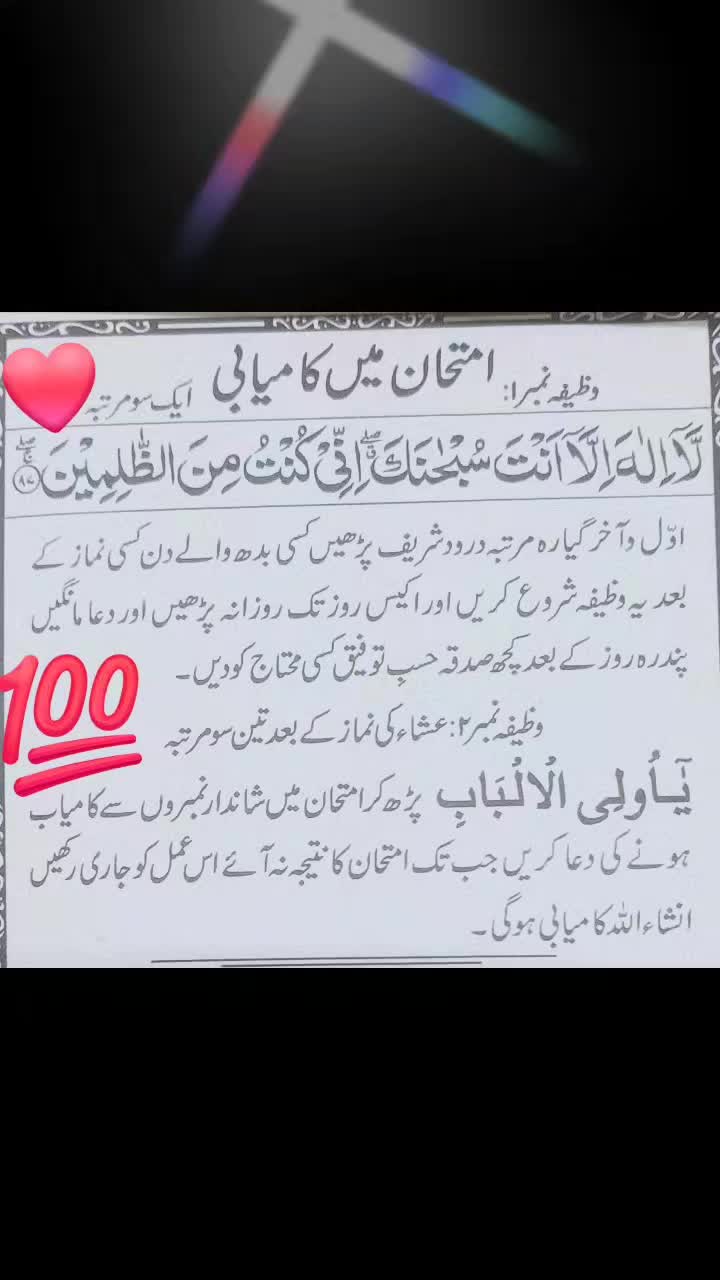 امتحان میں کامیابی
وظیفہ نمبر۱: ایک سو مرتبہ
لَّآ اِلٰهَ اِلَّآ اَنْتَ سُبْحٰنَكَ ۖۗ اِنِّیْ كُنْتُ مِنَ الظّٰلِمِیْنَ ۚۖ ﴿۸۷﴾
اوّل و آخر گیارہ مرتبہ درود شریف پڑھیں کسی بدھ والے دن کسی نماز کے
بعد یہ وظیفہ شروع کریں اور اکیس روز تک روزانہ پڑھیں اور دعا مانگیں
پندرہ روز کے بعد کچھ صدقہ حسبِ توفیق کسی محتاج کو دیں۔
100
وظیفہ نمبر۲: عشاء کی نماز کے بعد تین سو مرتبہ
یٰٓاُولِی الْاَلْبَابِ پڑھ کر امتحان میں شاندار نمبروں سے کامیاب
ہونے کی دعا کریں جب تک امتحان کا نتیجہ نہ آئے اس عمل کو جاری رکھیں
انشاء اللہ کامیابی ہوگی۔